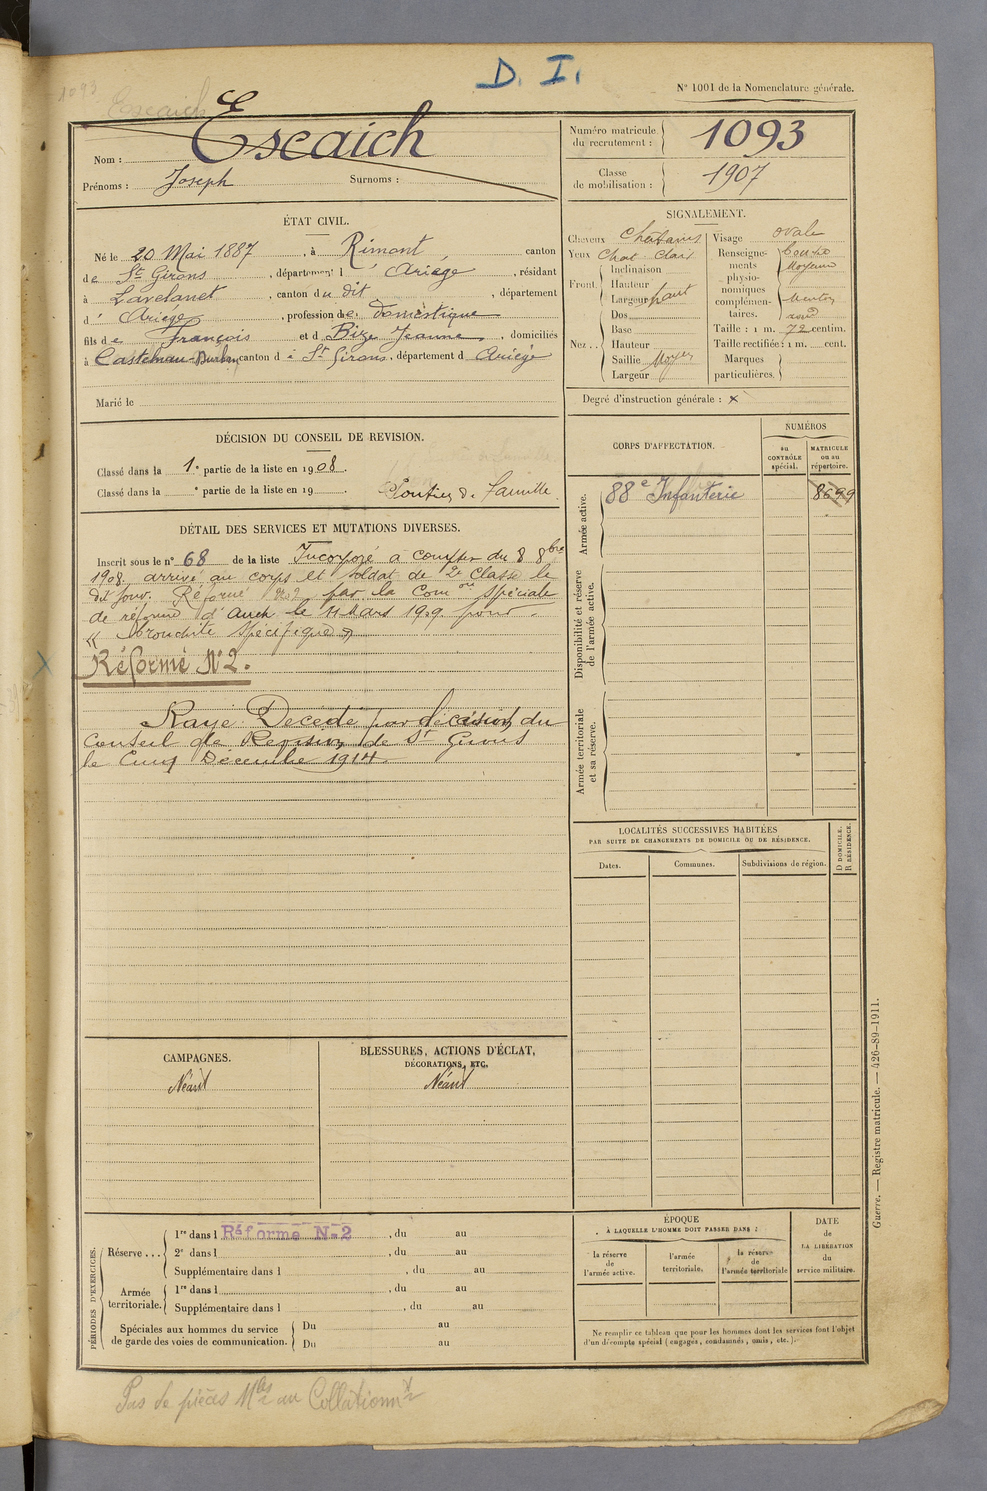 D. I.
N° 1001 de la Nomenclature générale.
1093
Escaich
Nom : Escaich
Prénoms : Joseph Surnoms :
Numéro matricule du recrutement : 1093
Classe de mobilisation : 1907
ÉTAT CIVIL.
Né le 20 Mai 1887, à Rimont canton
de St Girons, département d Ariège, résidant
à Lavelanet, canton du dit, département
d' Ariège, profession de domestique
fils de François et d Bize Jeanne, domiciliés
à Castelnau-Durban canton de St Girons, département d Ariège
Marié le
SIGNALEMENT.
Cheveux Châtains
Yeux Chat. Clair
Front. Inclinaison
Hauteur
Largeur haut
Nez.. Dos
Base
Hauteur
Saillie Moyen
Largeur
Visage ovale
Renseignements physionomiques complémentaires. Bouche Moyenne
Menton rond
Taille : 1 m. 72 centim.
Taille rectifiée : 1 m. cent.
Marques particulières.
Degré d'instruction générale : x
DÉCISION DU CONSEIL DE REVISION.
Classé dans la 1e partie de la liste en 1908.
Classé dans la e partie de la liste en 19 .
Soutien de famille
DÉTAIL DES SERVICES ET MUTATIONS DIVERSES.
Inscrit sous le n° 68 de la liste Incorporé à compter du 8 8bre
1908 arrivé au corps et soldat de 2e Classe le
dit jour. Réformé n°2 par la Comon spéciale
de réforme d'Auch le 11 Mars 1909 pour
« Bronchite spécifique »
Réformé N°2.
Rayé Décédé par décision du
Conseil de Revision de St Girons
le Cinq Décembre 1914.
CORPS D'AFFECTATION.
NUMÉROS
au CONTRÔLE spécial.
MATRICULE ou au répertoire.
Armée active.
88e Infanterie 8699
Disponibilité et réserve de l'armée active.
Armée territoriale et sa réserve.
LOCALITÉS SUCCESSIVES HABITÉES
PAR SUITE DE CHANGEMENTS DE DOMICILE OU DE RÉSIDENCE.
Dates. Communes. Subdivisions de région.
D DOMICILE.
R RÉSIDENCE.
CAMPAGNES.
Néant
BLESSURES, ACTIONS D'ÉCLAT,
DÉCORATIONS, ETC.
Néant
PÉRIODES D'EXERCICES.
Réserve... 1re dans l Réformé N°2, du au
2e dans l, du au
Supplémentaire dans l, du au
Armée territoriale. 1re dans l, du au
Supplémentaire dans l, du au
Spéciales aux hommes du service de garde des voies de communication. Du au
Du au
ÉPOQUE
À LAQUELLE L'HOMME DOIT PASSER DANS :
la réserve de l'armée active.
l'armée territoriale.
la réserve de l'armée territoriale
DATE
de
LA LIBÉRATION
du
service militaire.
Ne remplir ce tableau que pour les hommes dont les services font l'objet
d'un décompte spécial (engagés, condamnés, omis, etc.).
Guerre. — Registre matricule. — 426-89-1911.
Pas de pièces Mles au Collationnt